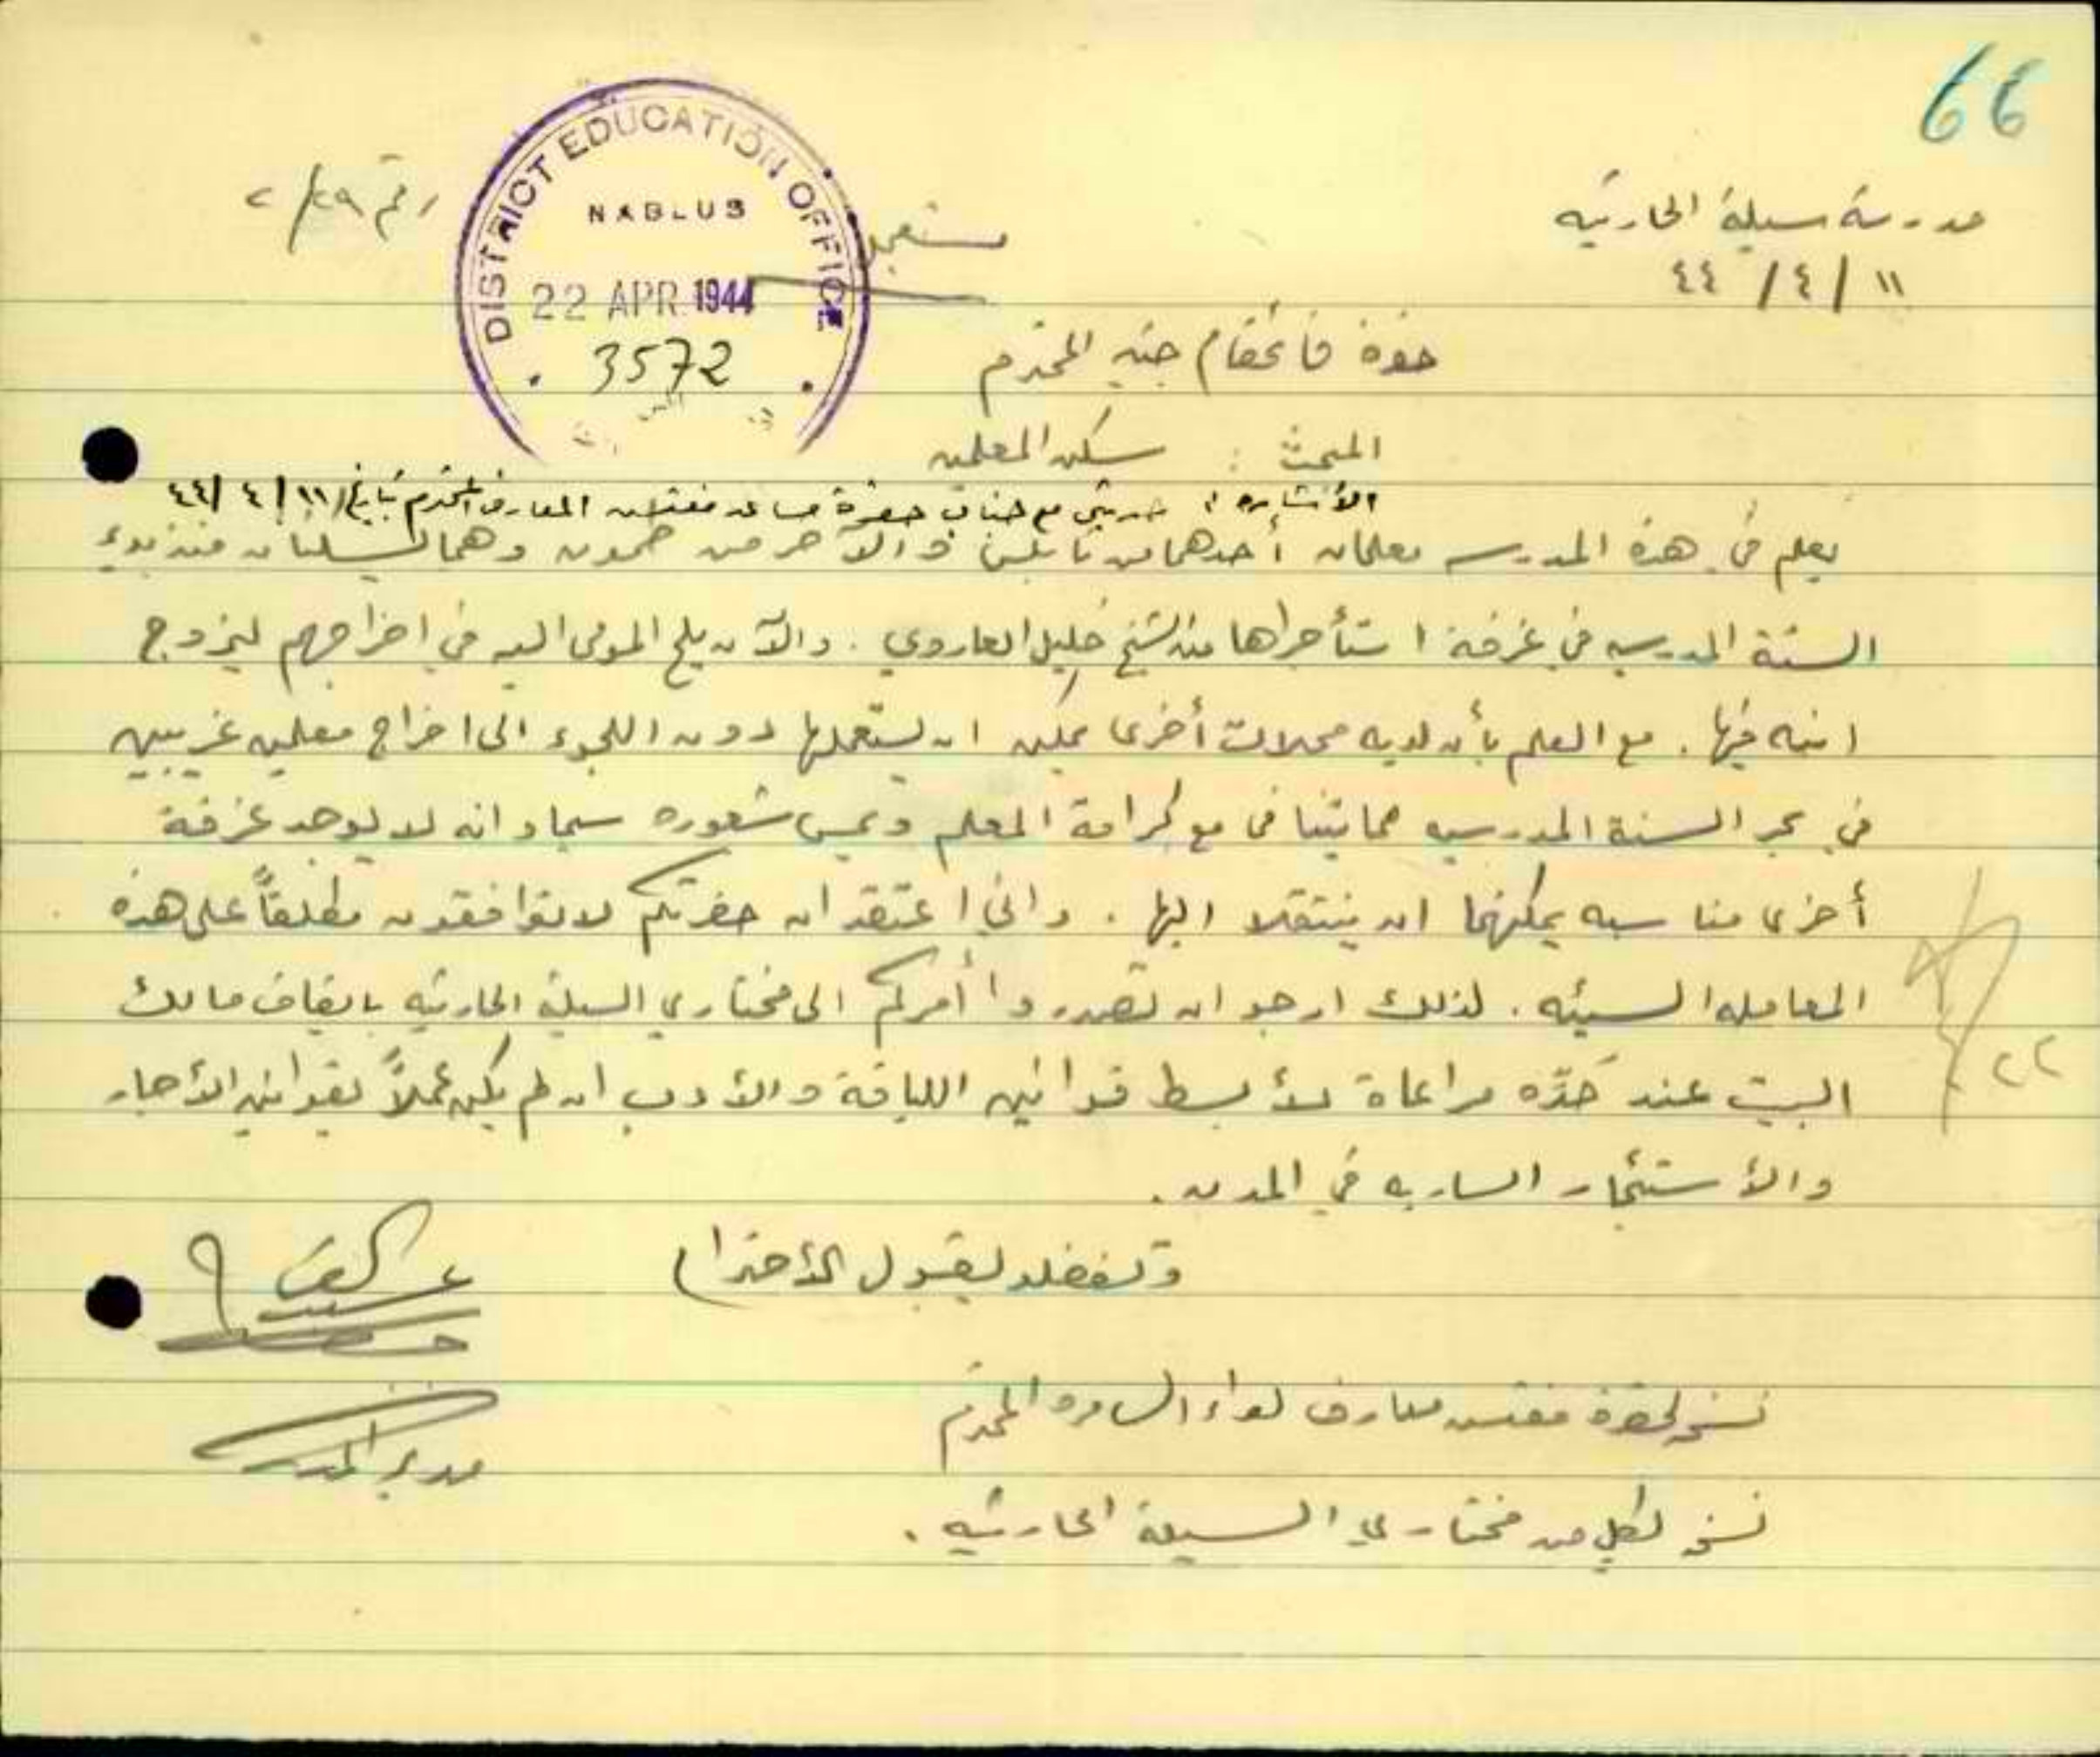 66
مدرسة سيلة الحارثيه
١١ / ٤ / ٤٤
رقم
مستعجل
DISTRICT EDUCATION OFFICE
NABLUS
22 APR 1944
3572
حضرة قائمقام جنين المحترم
المبحث : سكن المعلمين
الأشاره : حديثي مع جناب حضرة مساعد مفتش المعارف المحترم بتاريخ ١١ / ٤ / ٤٤
يعلم في هذه المدرسه معلمان أحدهما من نابلس والآخر من وهما يسكنان منذ بدء
السنة المدرسيه في غرفة استأجراها من الشيخ خليل العاروري . والآن يلح المومى اليه في اخراجهم ليزوج
ابنه فيها . مع العلم بأن لديه محلات أخرى يمكن ان يستعملها دون اللجوء الى اخراج معلمين غريبين
في بحر السنة المدرسيه مما يتنافى مع كرامة المعلم ويمس شعوره سيما وانه لا يوجد غرفة
أخرى مناسبه يمكنهما ان ينتقلا اليها . واني اعتقد ان حضرتكم لا توافقون مطلقاً على هذه
المعامله السيئه . لذلك ارجو ان تصدروا أمركم الى مختاري السيلة الحارثيه بايقاف مالك
البيت عند حدّه مراعاة لأبسط قوانين اللياقة والأدب ان لم يكن عملاً بقوانين الأجار
والأستئجار الساريه في المدن .
وتفضلو بقبول الأحترام
مدير المدرسة
نسخه لحضرة مفتش معارف لواء السامره المحترم
نسخه لكل من مختاري السيلة الحارثيه .